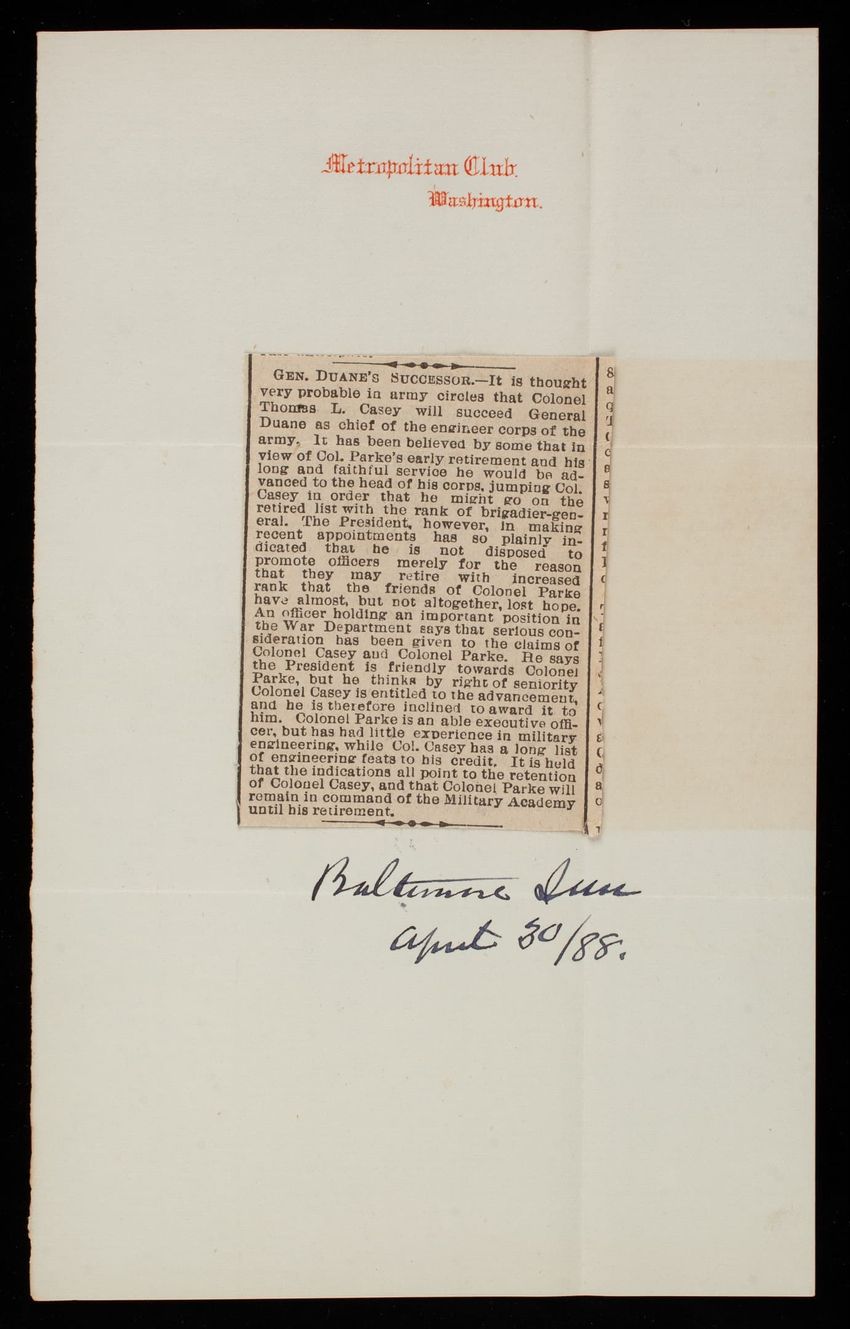 Metropolitan Club.
Washington.
GEN. DUANE'S SUCCESSOR.—It is thought
very probable in army circles that Colonel
Thomas L. Casey will succeed General
Duane as chief of the engineer corps of the
army. It has been believed by some that in
view of Col. Parke's early retirement and his
long and faithful service he would be ad-
vanced to the head of his corps, jumping Col.
Casey in order that he might go on the
retired list with the rank of brigadier-gen-
eral. The President, however, in making
recent appointments has so plainly in-
dicated that he is not disposed to
promote officers merely for the reason
that they may retire with increased
rank that the friends of Colonel Parke
have almost, but not altogether, lost hope.
An officer holding an important position in
the War Department says that serious con-
sideration has been given to the claims of
Colonel Casey and Colonel Parke. He says
the President is friendly towards Colonel
Parke, but he thinks by right of seniority
Colonel Casey is entitled to the advancement,
and he is therefore inclined to award it to
him. Colonel Parke is an able executive offi-
cer, but has had little experience in military
engineering, while Col. Casey has a long list
of engineering feats to his credit. It is held
that the indications all point to the retention
of Colonel Casey, and that Colonel Parke will
remain in command of the Military Academy
until his retirement.
Baltimore Sun
April 30/88.